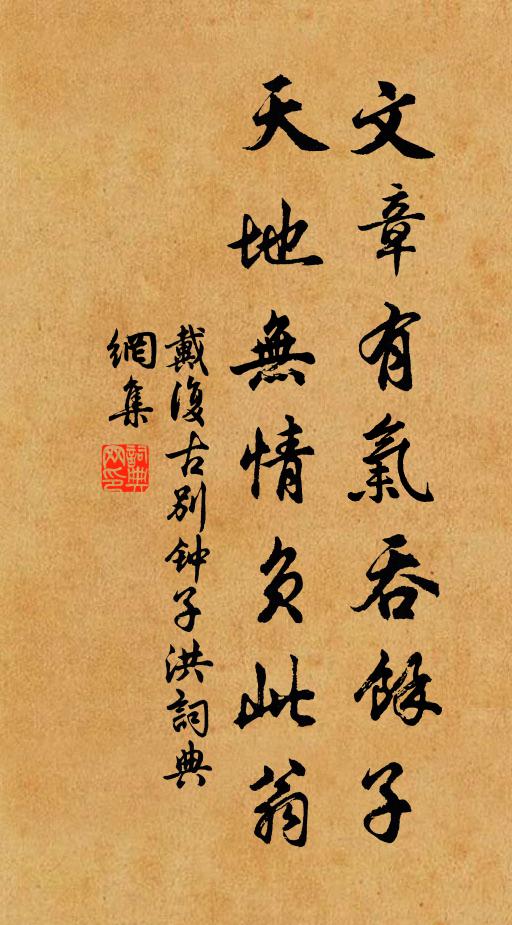 文章有氣吞餘子
天地無情負此翁
戴復古別钟子洪詞典
網集
詞典網印